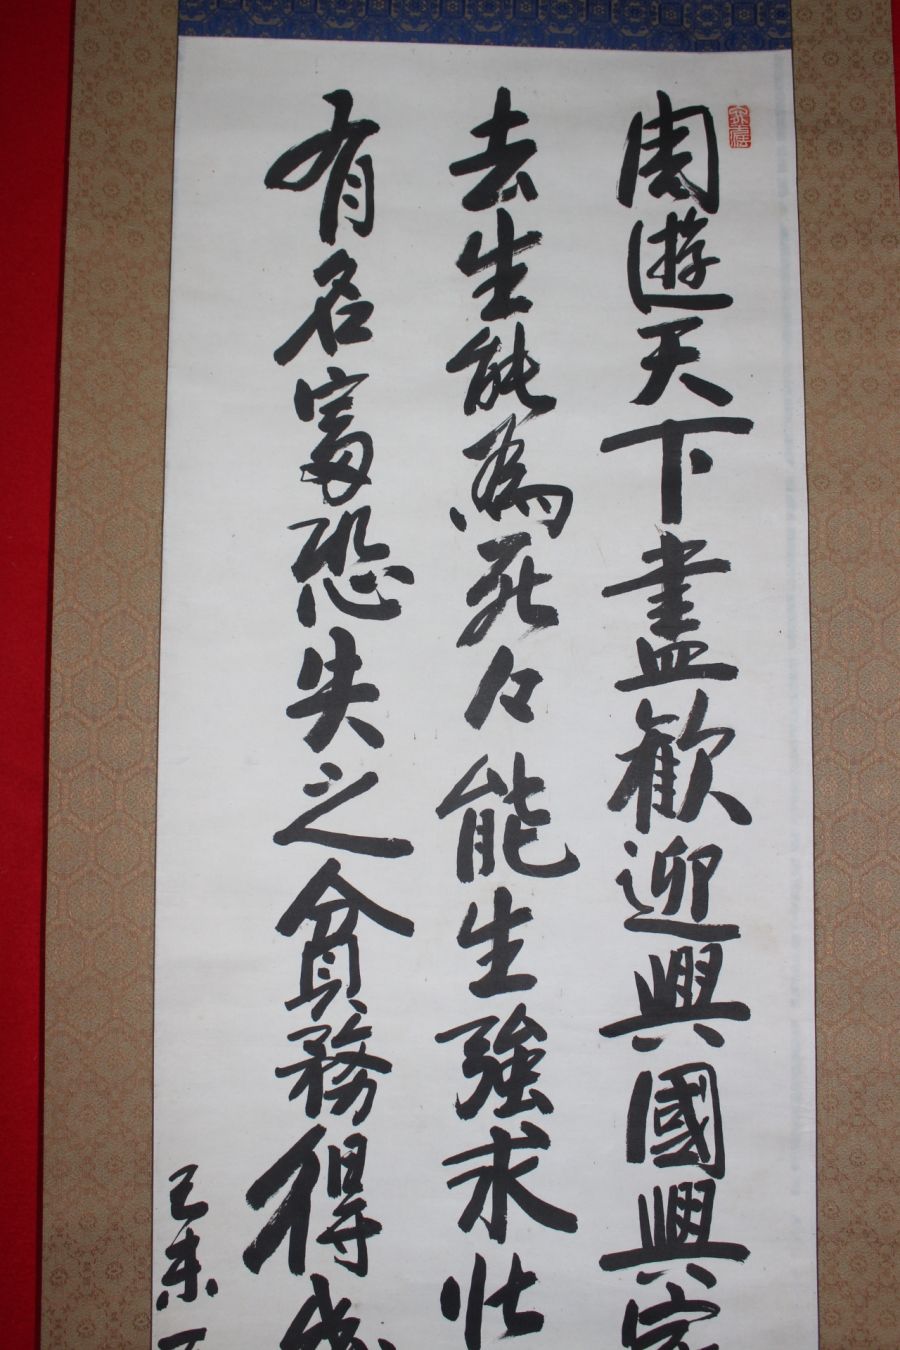 周遊天下盡歓迎興國興家
去生能為死々能生強求壮
有名富恐失之貧務得
己未